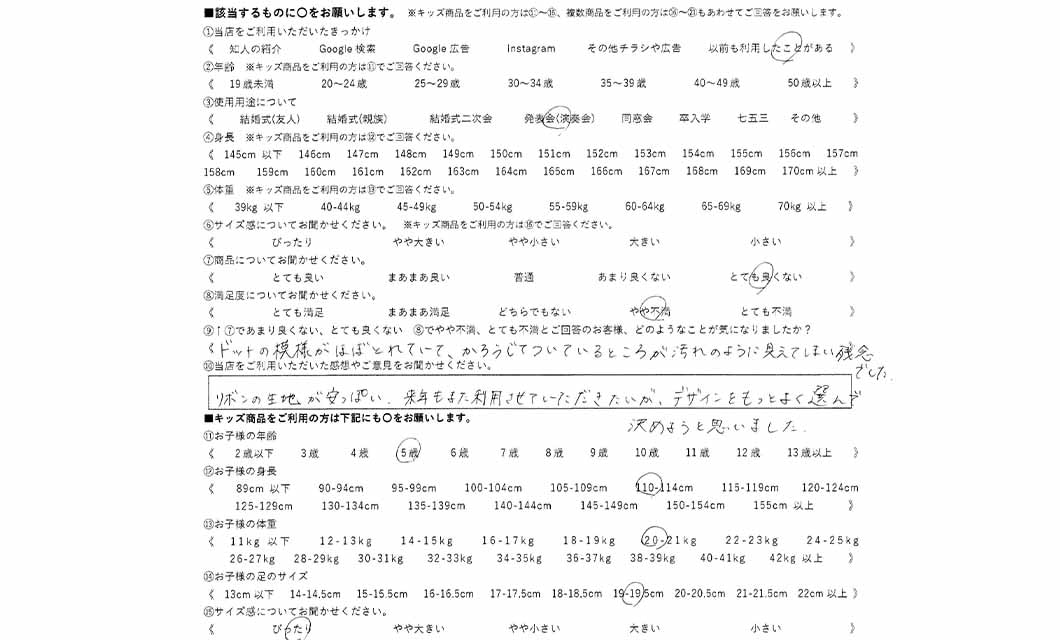 ■該当するものに〇をお願いします。 ※キッズ商品をご利用の方は⑪〜⑮、複数商品をご利用の方は⑯〜㉑もあわせてご回答をお願いします。
①当店をご利用いただいたきっかけ
《 知人の紹介 Google 検索 Google 広告 Instagram その他チラシや広告 以前も利用したことがある 》
②年齢 ※キッズ商品をご利用の方は⑪でご回答ください。
《 19歳未満 20〜24歳 25〜29歳 30〜34歳 35〜39歳 40〜49歳 50歳以上 》
③使用用途について
《 結婚式(友人) 結婚式(親族) 結婚式二次会 発表会(演奏会) 同窓会 卒入学 七五三 その他 》
④身長 ※キッズ商品をご利用の方は⑫でご回答ください。
《 145cm 以下 146cm 147cm 148cm 149cm 150cm 151cm 152cm 153cm 154cm 155cm 156cm 157cm
158cm 159cm 160cm 161cm 162cm 163cm 164cm 165cm 166cm 167cm 168cm 169cm 170cm 以上 》
⑤体重 ※キッズ商品をご利用の方は⑬でご回答ください。
《 39kg 以下 40-44kg 45-49kg 50-54kg 55-59kg 60-64kg 65-69kg 70kg 以上 》
⑥サイズ感についてお聞かせください。 ※キッズ商品をご利用の方は⑮でご回答ください。
《 ぴったり やや大きい やや小さい 大きい 小さい 》
⑦商品についてお聞かせください。
《 とても良い まあまあ良い 普通 あまり良くない とても良くない 》
⑧満足度についてお聞かせください。
《 とても満足 まあまあ満足 どちらでもない やや不満 とても不満 》
⑨↑⑦であまり良くない、とても良くない ⑧でやや不満、とても不満とご回答のお客様、どのようなことが気になりましたか？
《ドットの模様がほぼとれていて、かろうじてついているところが汚れのように見えてしまい残念
でした。
⑩当店をご利用いただいた感想やご意見をお聞かせください。
リボンの生地が安っぽい。来年もまた利用させていただきたいが、デザインをもっとよく選んで
決めようと思いました。
■キッズ商品をご利用の方は下記にも〇をお願いします。
⑪お子様の年齢
《 2歳以下 3歳 4歳 5歳 6歳 7歳 8歳 9歳 10歳 11歳 12歳 13歳以上 》
⑫お子様の身長
《 89cm 以下 90-94cm 95-99cm 100-104cm 105-109cm 110-114cm 115-119cm 120-124cm
125-129cm 130-134cm 135-139cm 140-144cm 145-149cm 150-154cm 155cm 以上 》
⑬お子様の体重
《 11kg 以下 12-13kg 14-15kg 16-17kg 18-19kg 20-21kg 22-23kg 24-25kg
26-27kg 28-29kg 30-31kg 32-33kg 34-35kg 36-37kg 38-39kg 40-41kg 42kg 以上 》
⑭お子様の足のサイズ
《 13cm 以下 14-14.5cm 15-15.5cm 16-16.5cm 17-17.5cm 18-18.5cm 19-19.5cm 20-20.5cm 21-21.5cm 22cm 以上 》
⑮サイズ感についてお聞かせください。
《 ぴったり やや大きい やや小さい 大きい 小さい 》